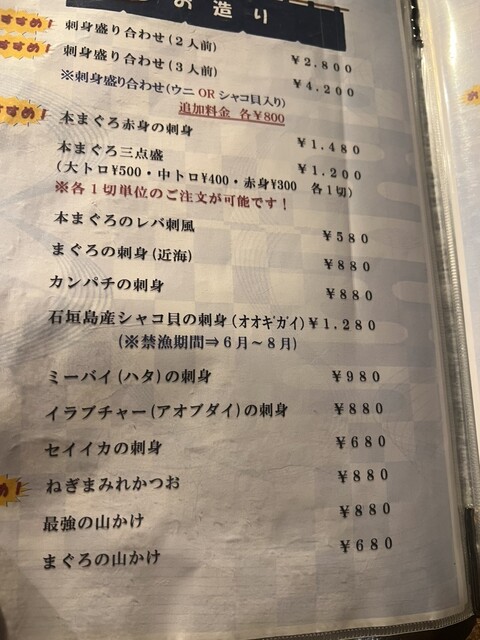 お造り
すすめ！
刺身盛り合わせ(2人前) ￥2.800
すすめ！
刺身盛り合わせ(3人前) ￥4.200
※刺身盛り合わせ(ウニ OR シャコ貝入り)
追加料金 各￥800
すすめ！
本まぐろ赤身の刺身 ￥1.480
本まぐろ三点盛 ￥1.200
(大トロ¥500・中トロ¥400・赤身¥300 各1切)
※各1切単位のご注文が可能です！
本まぐろのレバ刺風 ￥580
まぐろの刺身(近海) ￥880
カンパチの刺身 ￥880
石垣島産シャコ貝の刺身(オオギガイ) ￥1.280
(※禁漁期間⇒6月～8月)
ミーバイ(ハタ)の刺身 ￥980
イラブチャー(アオブダイ)の刺身 ￥880
セイイカの刺身 ￥680
ねぎまみれかつお ￥880
め！
最強の山かけ ￥880
まぐろの山かけ ￥680